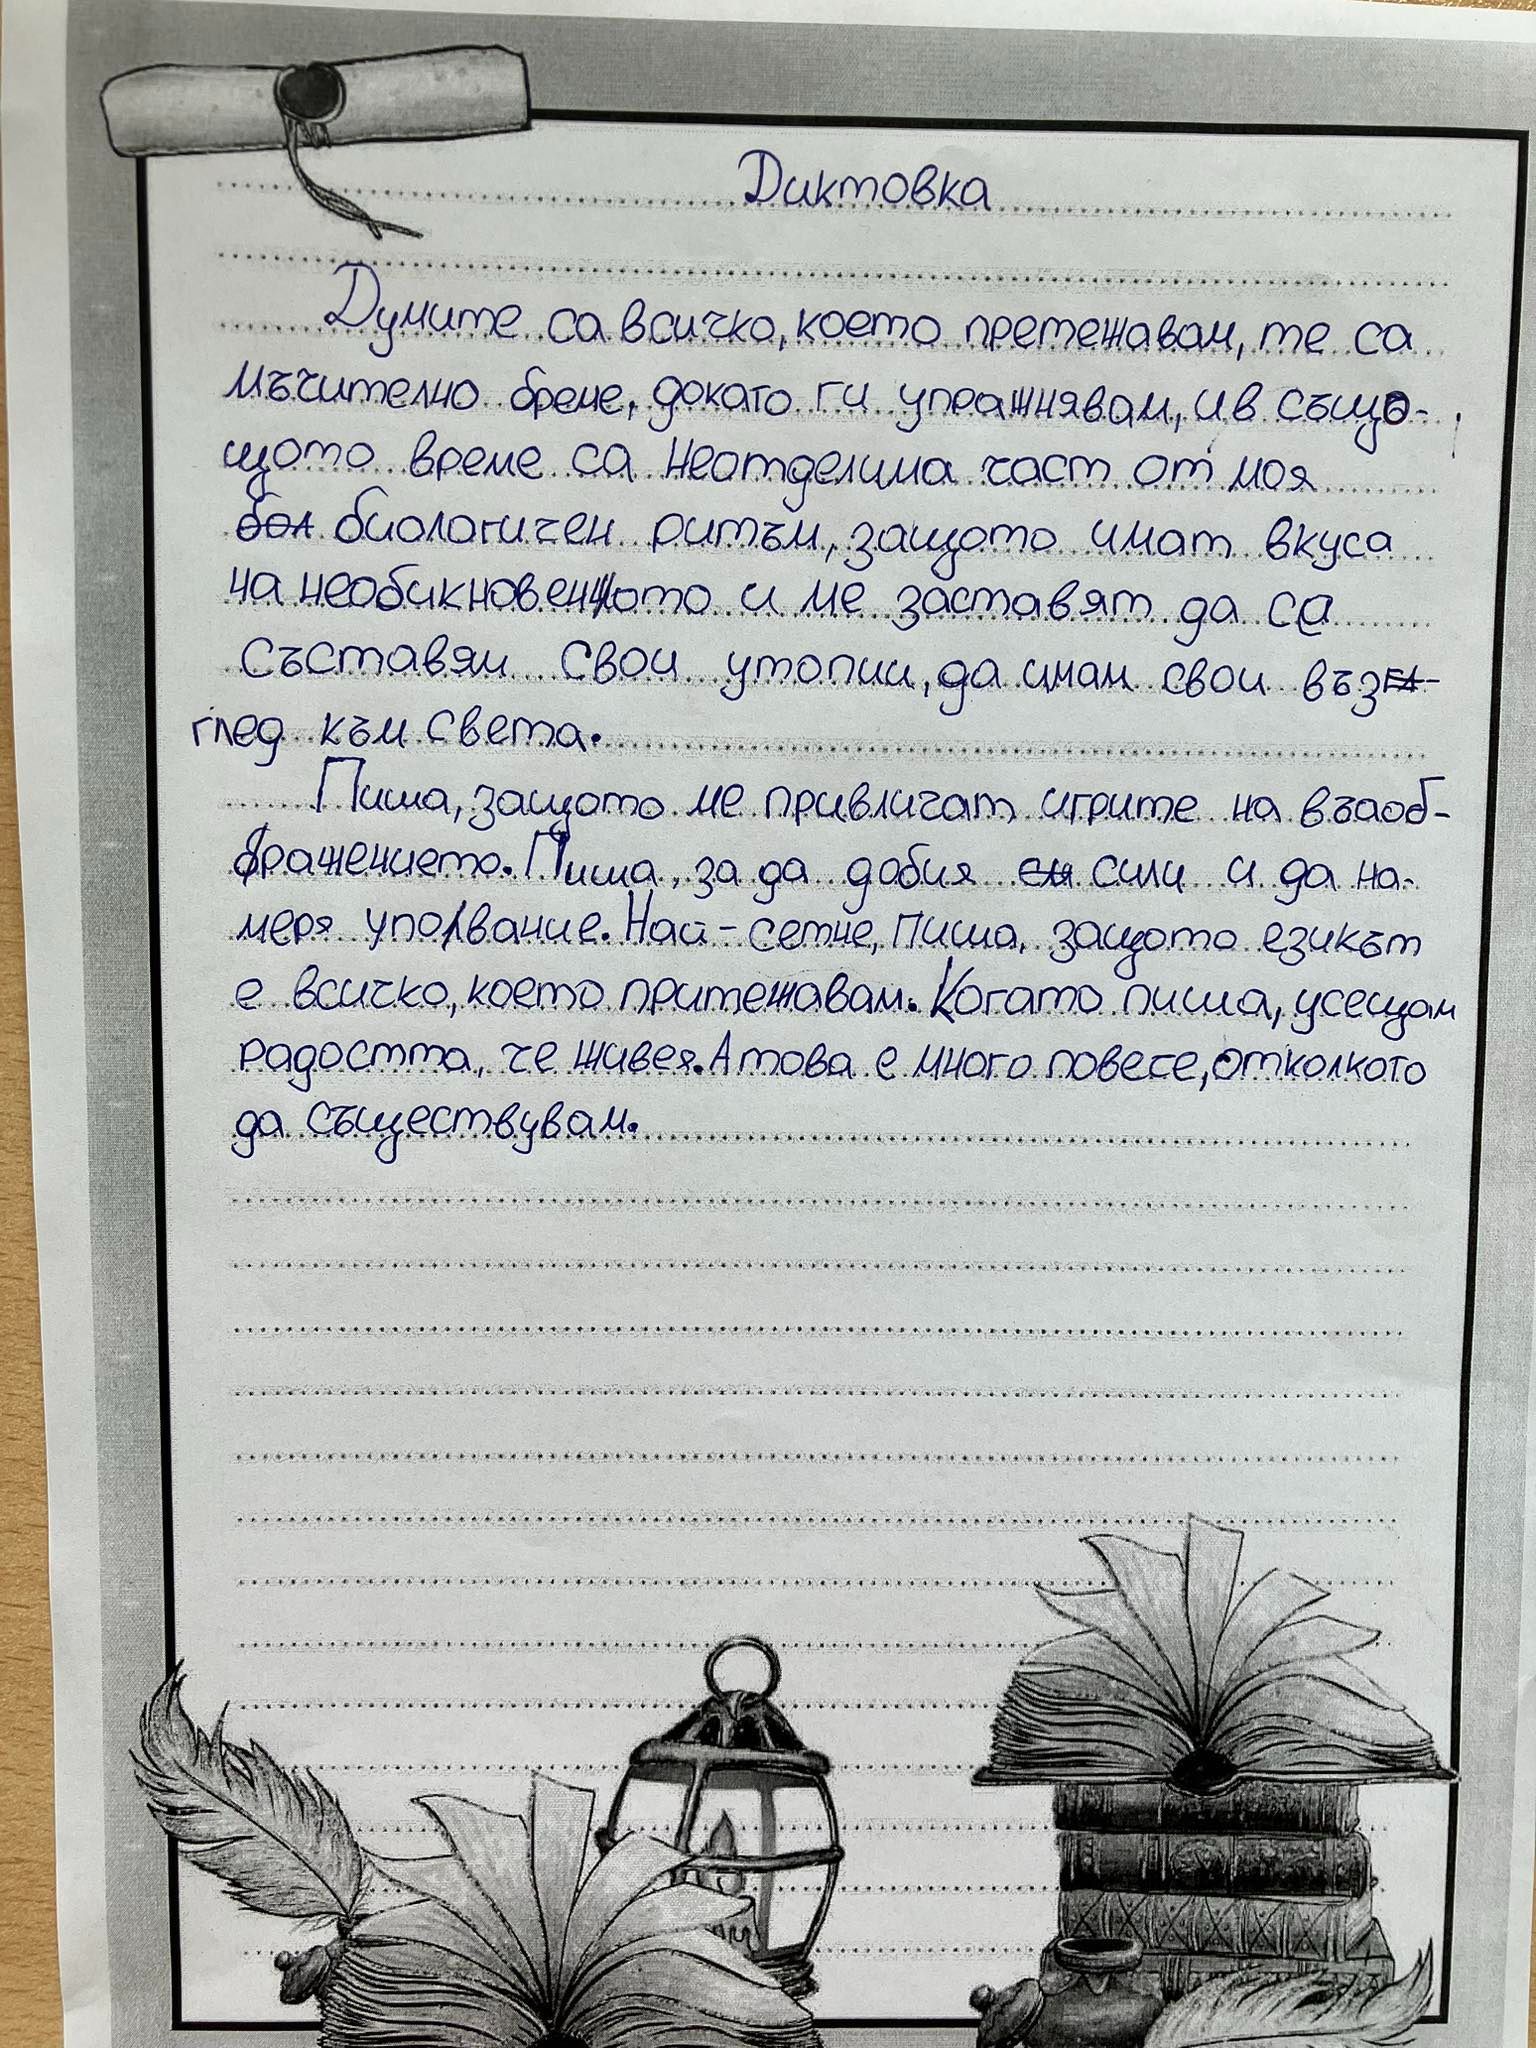 Диктовка
Думите са всичко, което претежавам, те са
мъчително бреме, докато ги упражнявам, и в също-
щото време са неотделима част от моя
бол биологичен ритъм, защото имат вкуса
на необикновенното и ме заставят да са
съставям свои утопии, да имам свои въз
глед към света.
Пиша, защото ме привличат игрите на въаоб-
бражението. Пиша, за да добия сили и да на-
меря упование. Най-сетне, пиша, защото езикът
е всичко, което притежавам. Когато пиша, усещам
радостта, че живея. А това е много повече, отколкото
да съществувам.